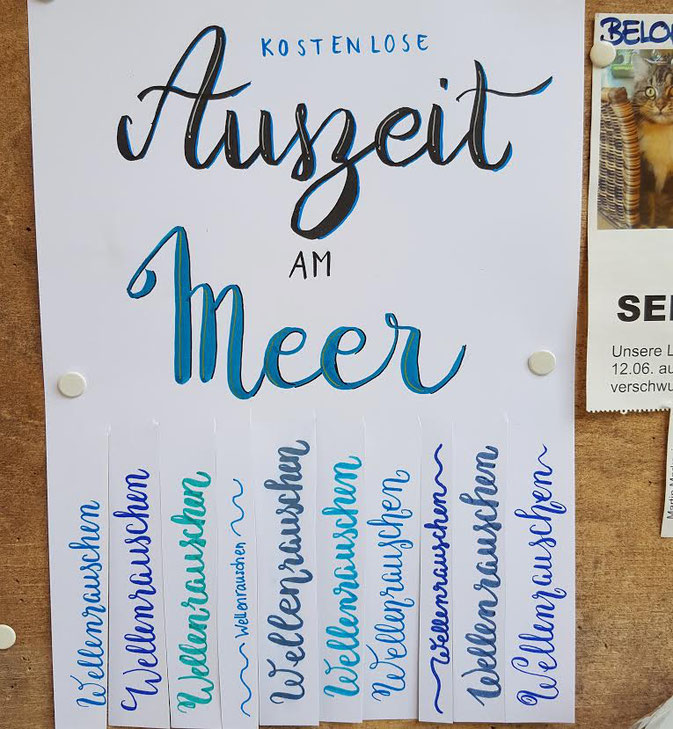 KOSTENLOSE
Auszeit
AM
Meer
Wellenrauschen
Wellenrauschen
Wellenrauschen
Wellenrauschen
Wellenrauschen
Wellenrauschen
Wellenrauschen
Wellenrauschen
Wellenrauschen
Wellenrauschen
Unsere
12.06.